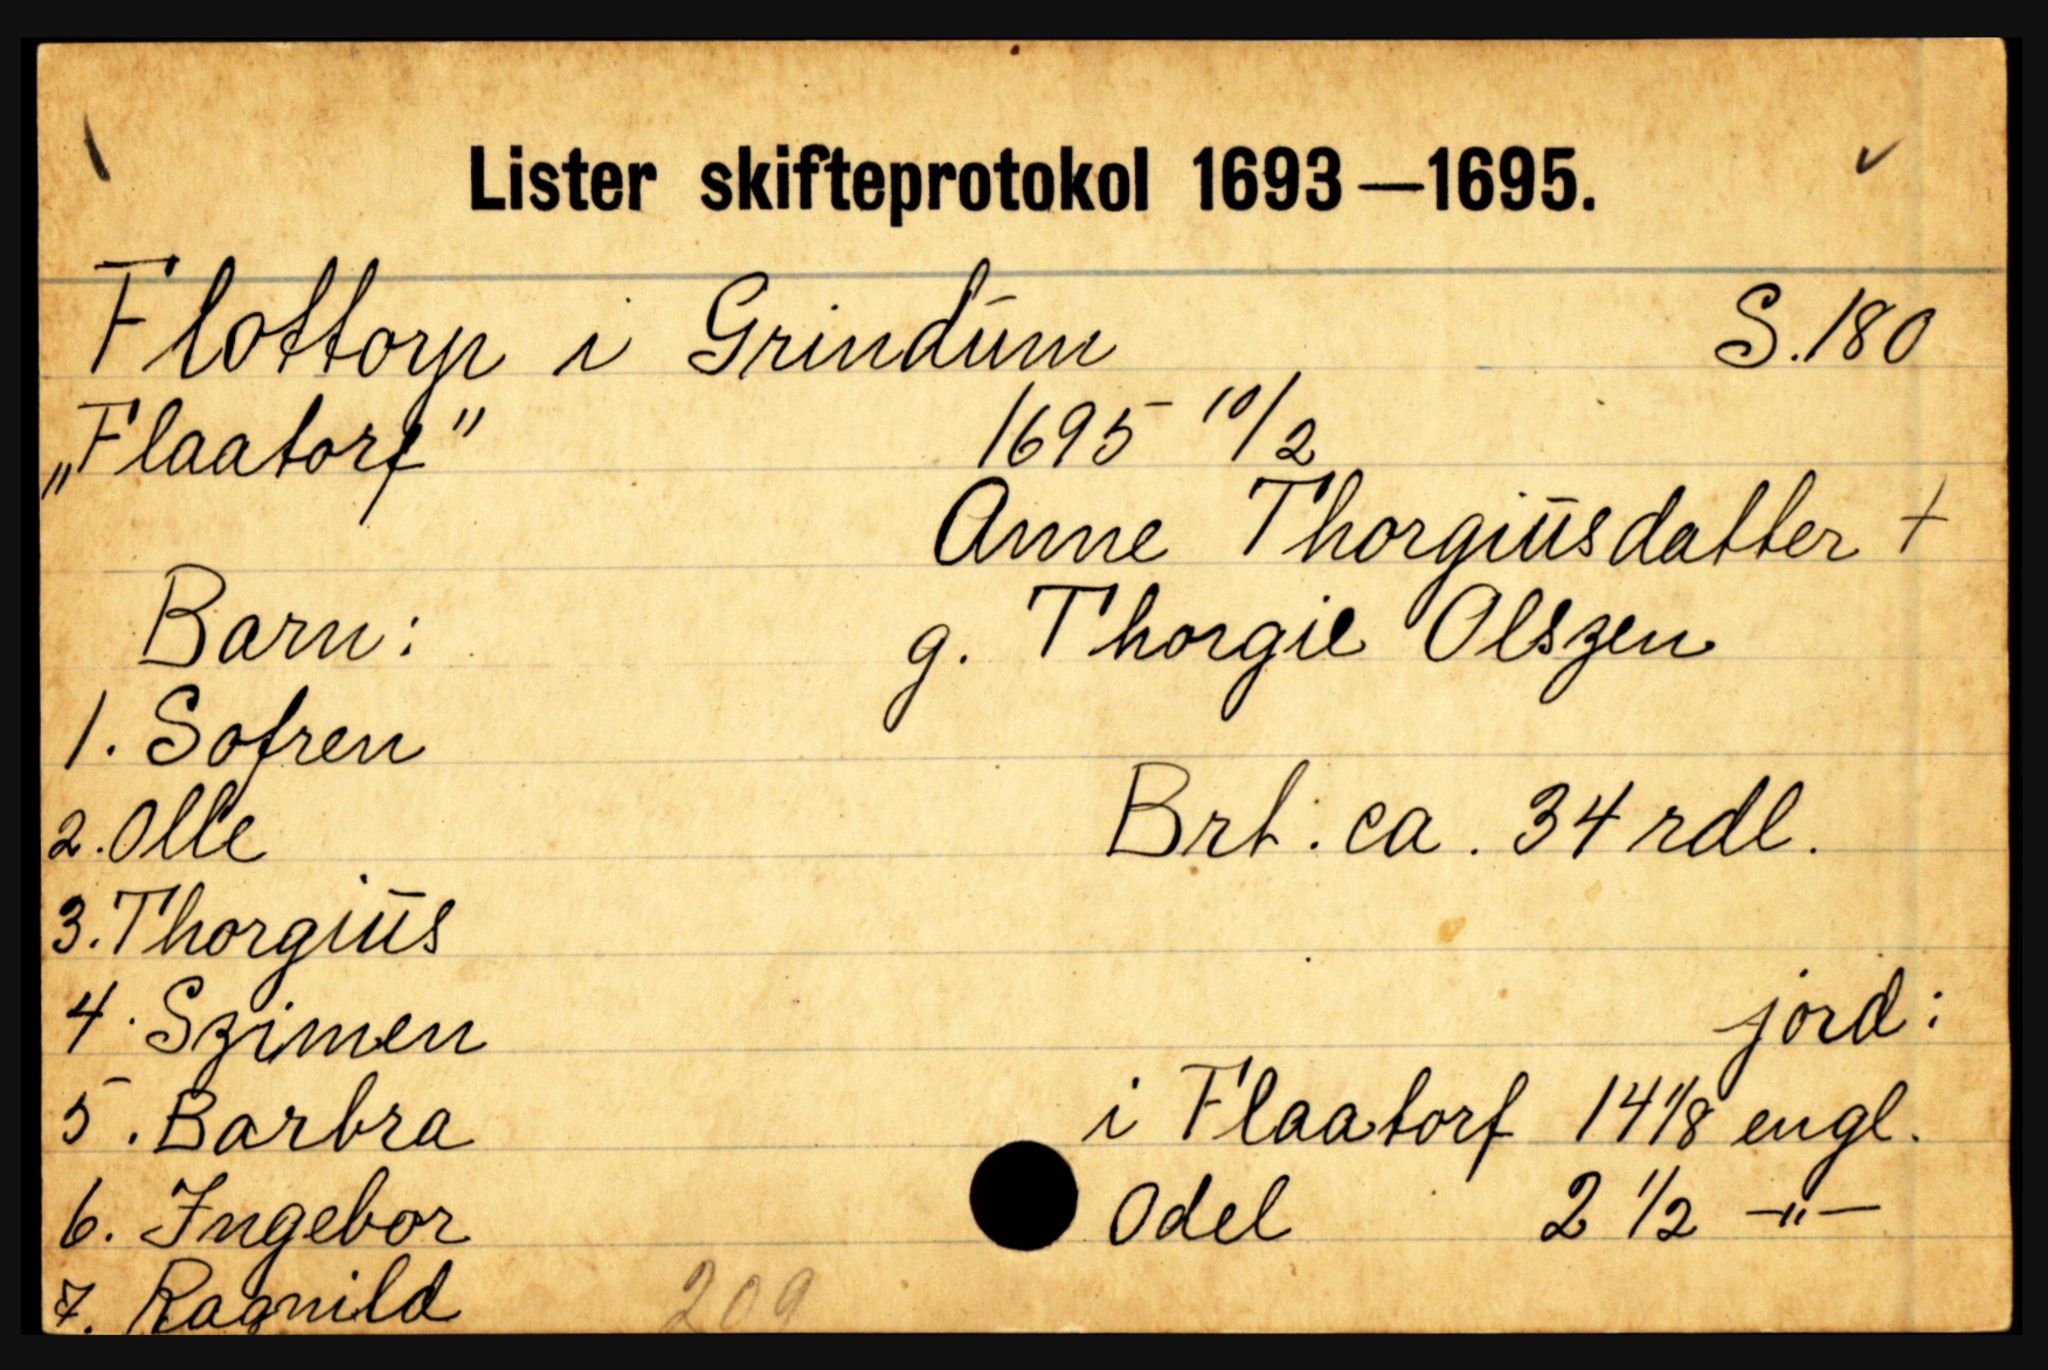 Lister skifteprotokol 1693—1695.
Flottorp i Grindum S. 180
„Flaatorf" 1695 10/2
Anne Thorgiusdatter +
Barn: g. Thorgie Olszen
1. Sofren
2. Olle Brt. ca. 34 rdl.
3. Thorgius
4. Szimen jord:
5. Barbra i Flaatorf 14 1/8 engl.
6. Ingebor Odel 2 1/2 —"—
7. Ragnild 209